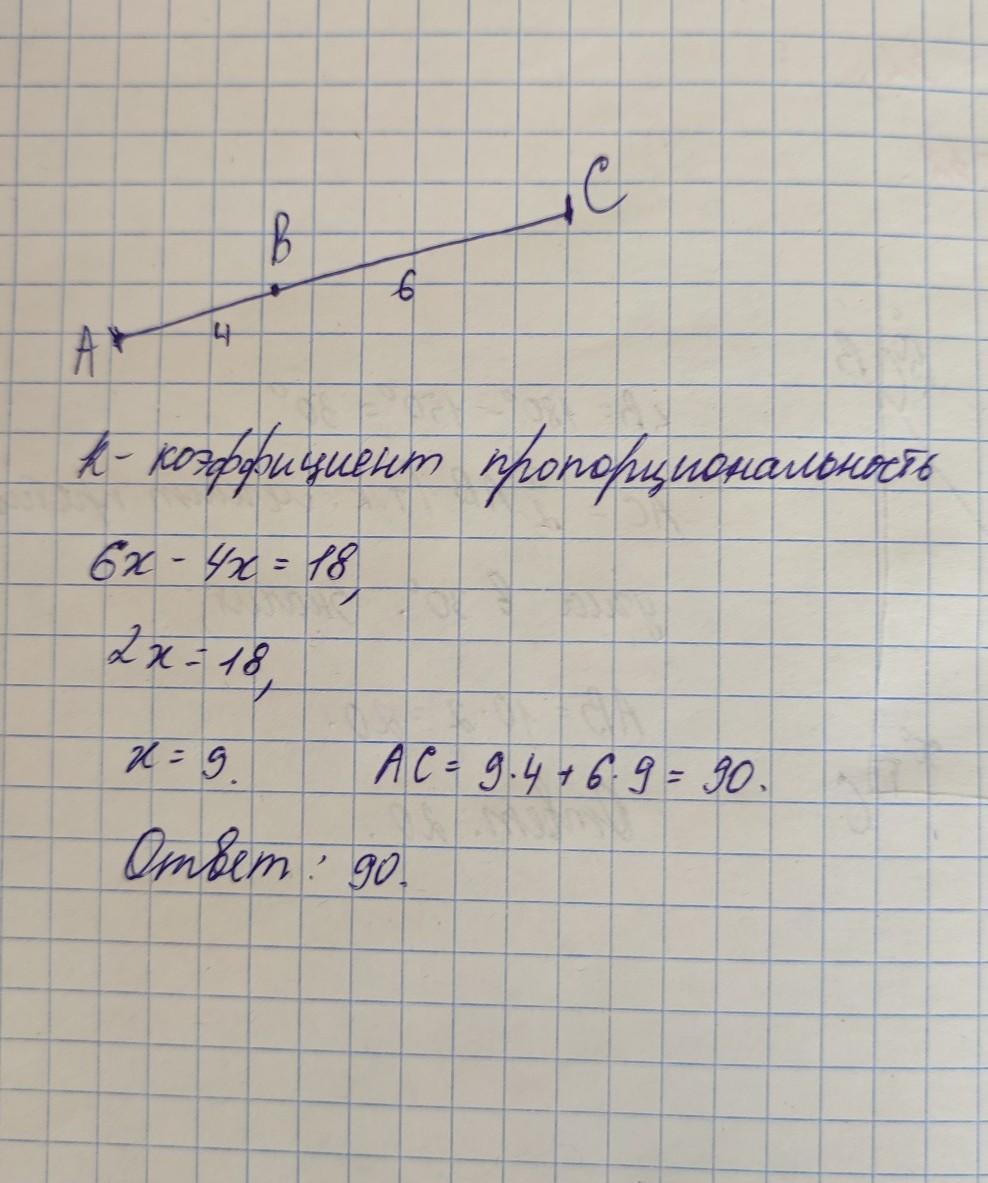 C
B
6
4
A
k - коэффициент пропорциональность
6x - 4x = 18,
2x = 18,
x = 9. AC = 9·4 + 6·9 = 90.
Ответ: 90.